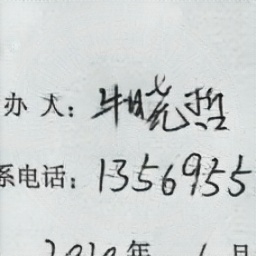 办人：牛晓哲
系电话：1356955
2020年 6月